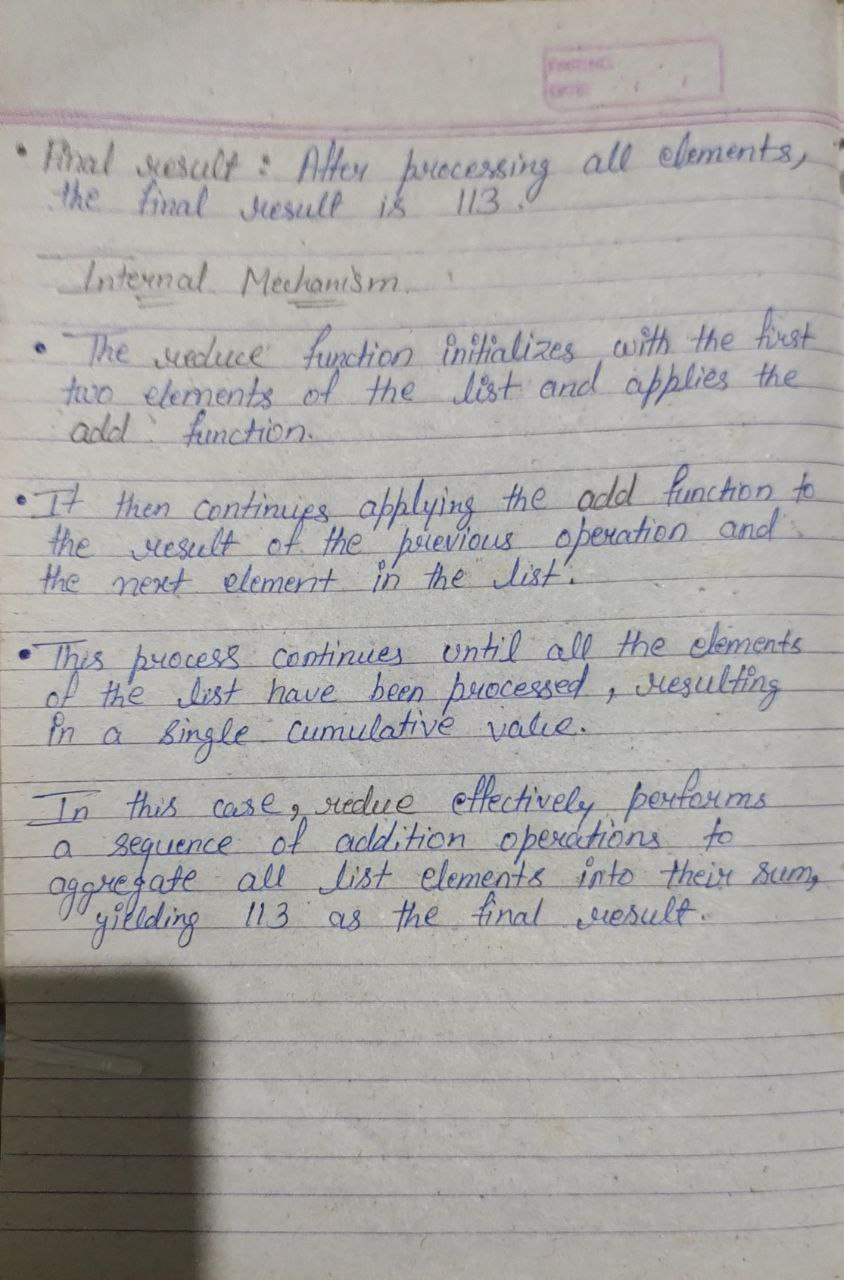 • Final result : After processing all elements,
the final result is 113.
Internal Mechanism.
• The reduce function initializes with the first
two elements of the list and applies the
add function.
• It then continues applying the add function to
the result of the previous operation and
the next element in the list.
• This process continues until all the elements
of the list have been processed, resulting
in a single cumulative value.
In this case, reduce effectively performs
a sequence of addition operations to
aggregate all list elements into their sum,
yielding 113 as the final result.